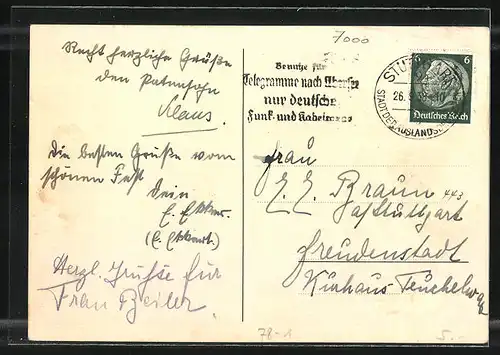 7000
Recht herzliche Grüße
den Patensohn
Klaus.
Die besten Grüße vom
schönen Fest
Dein
E. Ekker.
(E. Ekkert.)
Herzl. Grüße für
Frau Beiler.
Benutze für
Telegramme nach Übersee
nur deutsche
Funk- und Kabelwege
STUTTGART
STADT DER AUSLANDSD
26.
6
Deutsches Reich
Frau
E. E. Braun
443
Stuttgart
Freudenstadt
Kurhaus Teuchelweg
78-1
5.-